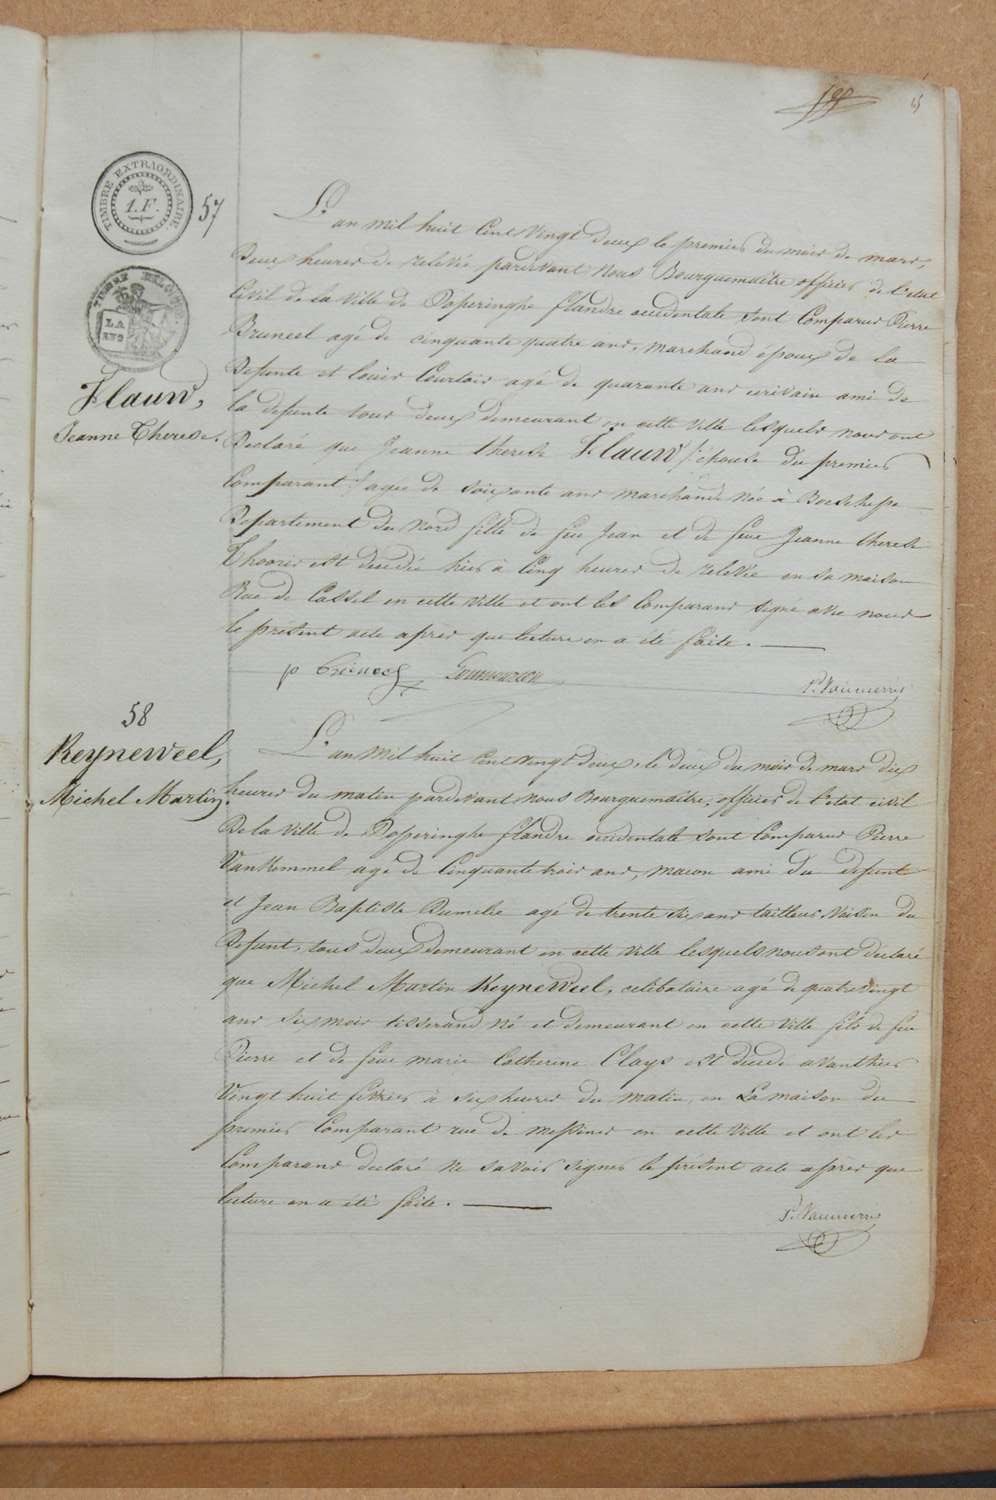 15
TIMBRE EXTRAORDINAIRE
1.F.
57
Flauw,
Jeanne Therese.
L'an mil huit cent vingt deux le premier du mois de mars,
Deux heures de relevée pardevant Nous Bourguemaitre officier de l'etat
Civil de la Ville de Poperinghe flandre occidentale sont Comparus Pierre
Bruneel agé de cinquante quatre ans, marchand époux de la
Defunte et louis Courtois agé de quarante ans ecrivain ami de
la defunte tous deux demeurant en cette Ville lesquels nous ont
Declaré que Jeanne therese Flauw épouse du premier
Comparant agée de soixante ans marchande née à Boeschepe
Departement du Nord fille de feu Jean et de feue Jeanne therese
est decedée hier à Cinq heures de relevée en sa maison
Rue de Cassel en cette Ville et ont les Comparans signé avec nous
le présent acte après que lecture en a été faite.
58
Keyneweel,
Michel Martin.
L'an Mil huit Cent vingt deux, le deux du mois de mars dix
heures du matin pardevant nous Bourguemaitre, officier de l'etat civil
De la Ville de Poperinghe flandre occidentale sont Comparus Pierre
VanKemmel agé de Cinquante trois ans, macon ami du defunt
et Jean Baptiste Dumelie agé de trente six ans tailleur, Voisin du
Defunt, tous deux demeurant en cette Ville lesquels nous ont déclaré
que Michel Martin Keyneweel, celibataire agé de quatre vingt
ans six mois tisserand né et demeurant en cette Ville fils de feu
Pierre et de feue marie Catherine Clays est decedé avant hier
Vingt huit fevrier à six heures du matin, en La maison du
premier Comparant rue de messines en cette Ville et ont les
Comparans declaré ne savoir signer le présent acte après que
lecture en a été faite.